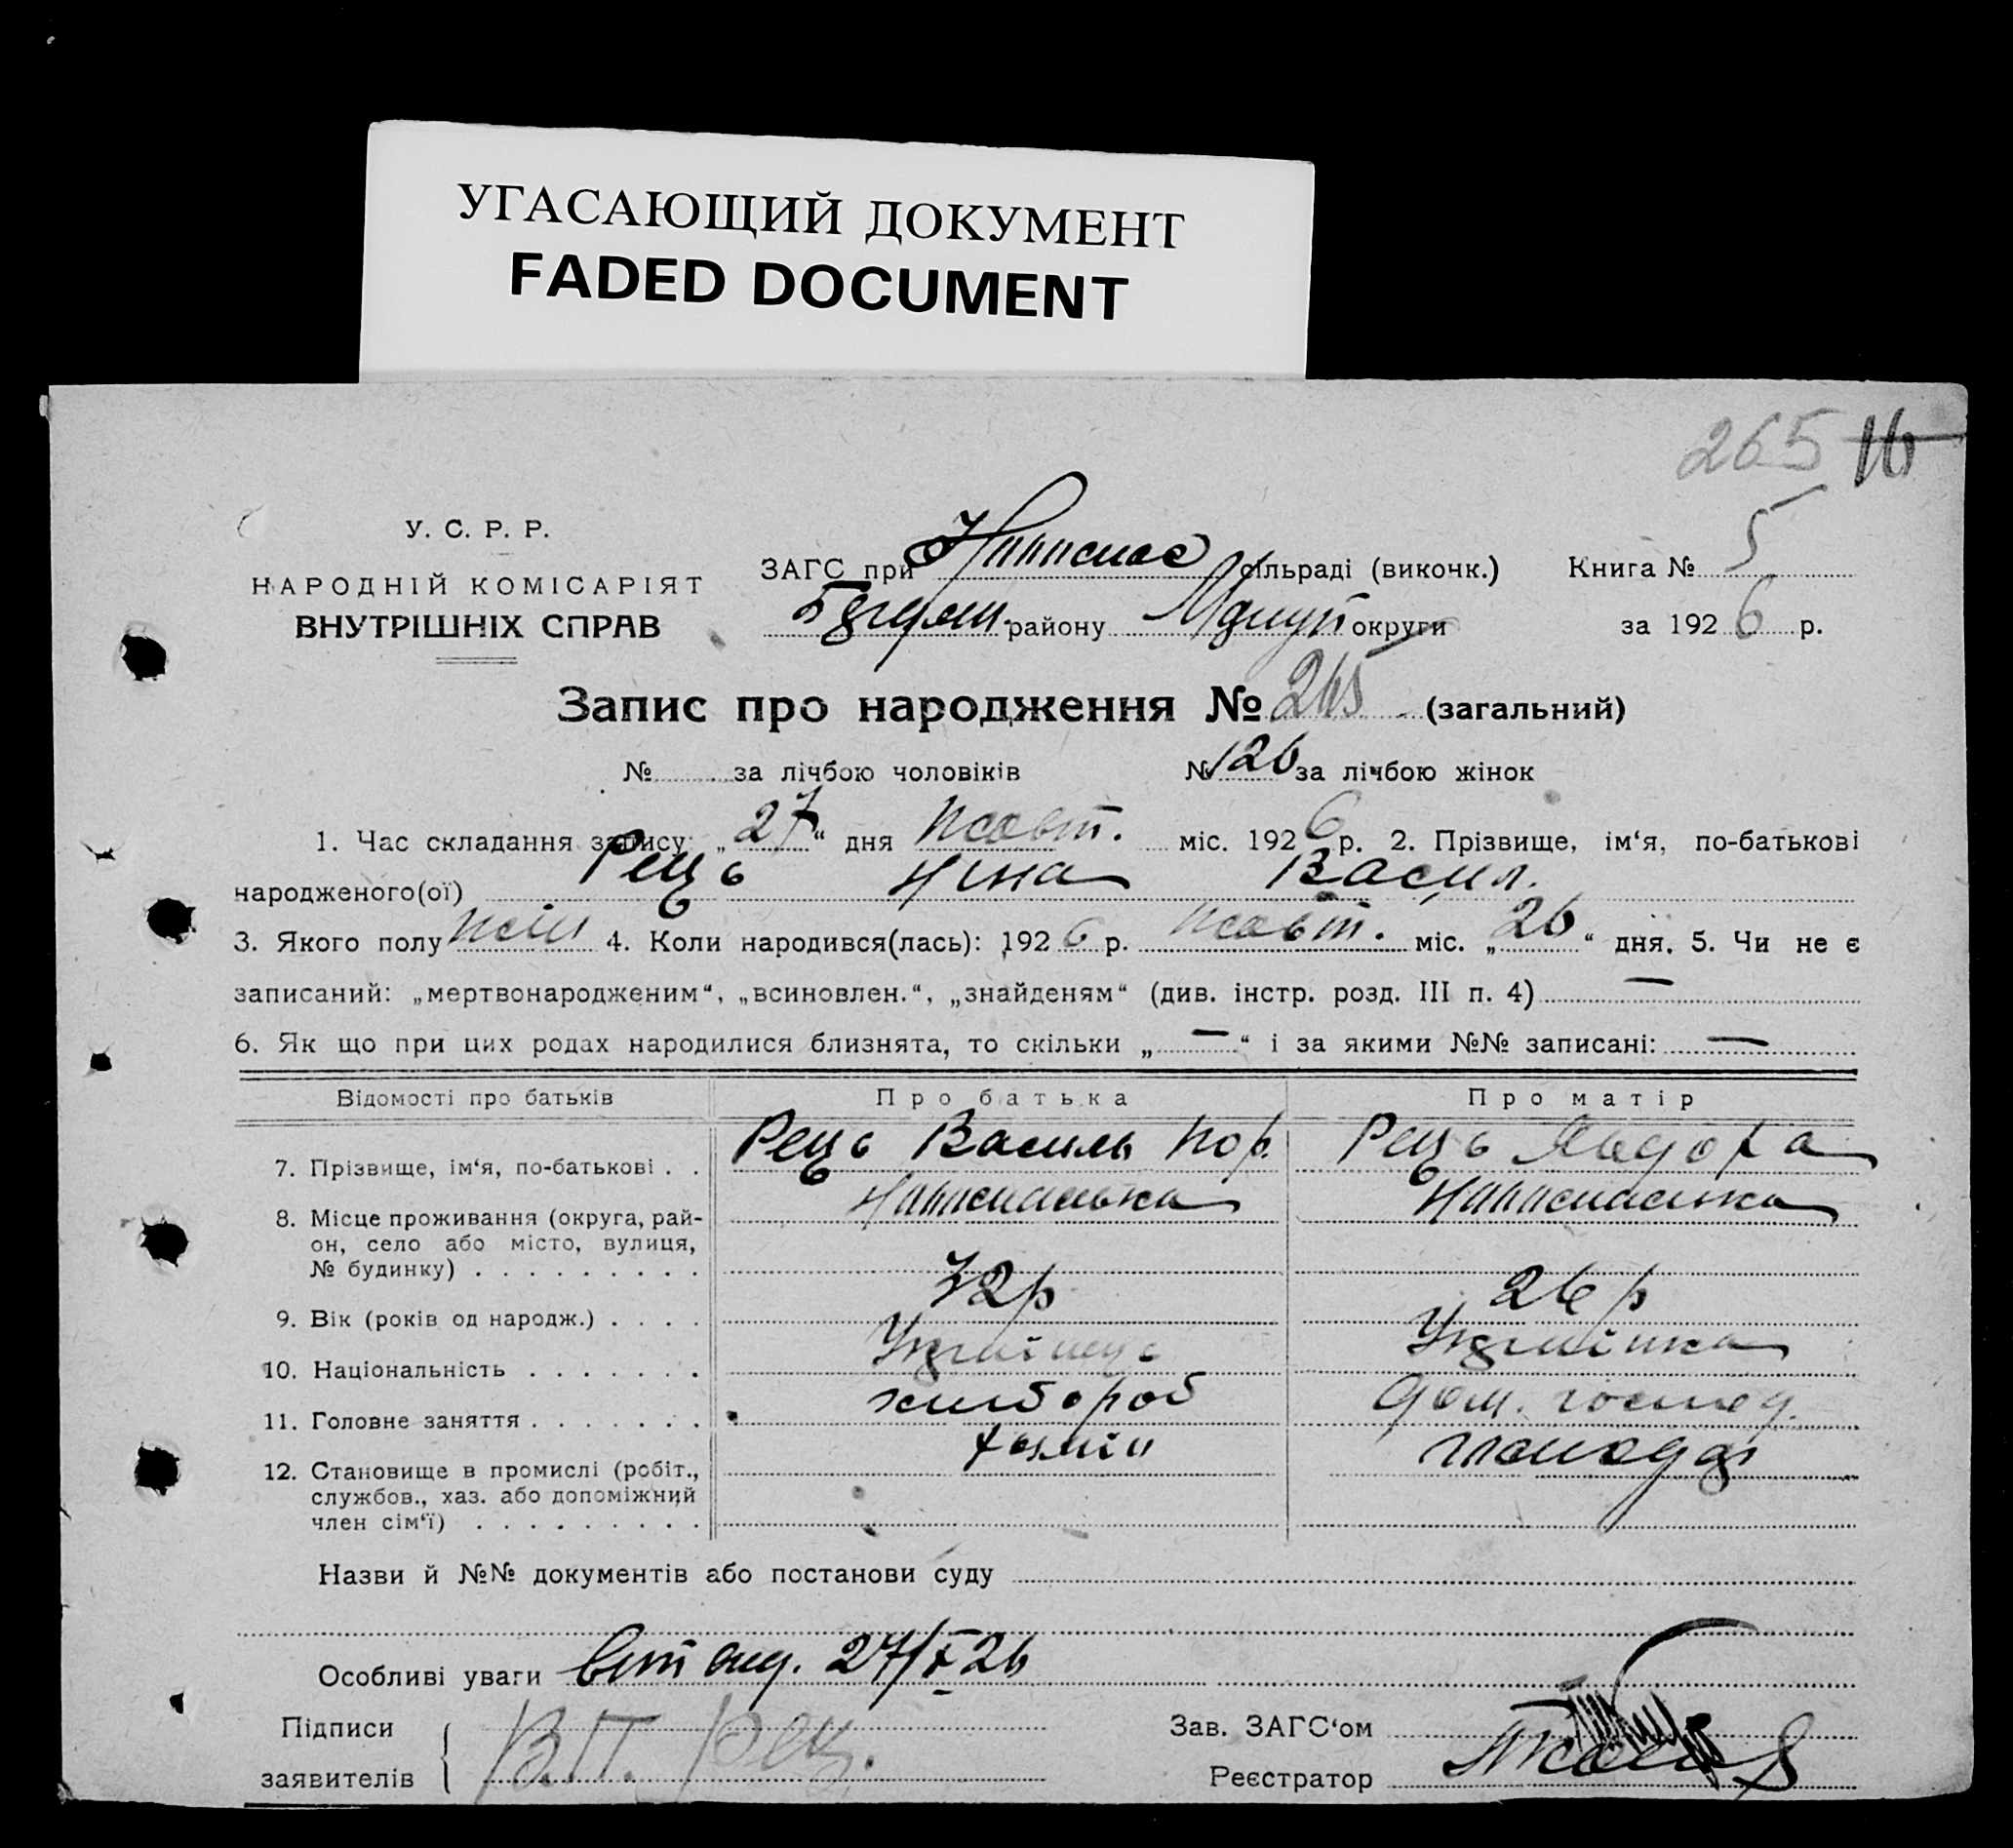 УГАСАЮЩИЙ ДОКУМЕНТ
FADED DOCUMENT
265 16
У. С. Р. Р.
НАРОДНІЙ КОМІСАРІЯТ
ВНУТРІШНІХ СПРАВ
ЗАГС при сільраді (виконк.) Книга № 5
району округи за 1926 р.
Запис про народження № 265 (загальний)
№ за лічбою чоловіків № 126 за лічбою жінок
1. Час складання запису: „27“ дня жовт. міс. 1926 р. 2. Прізвище, ім‘я, по-батькові
народженого(ої) Рець Ніна Васил.
3. Якого полу жін 4. Коли народився(лась): 1926 р. жовт. міс. „26“ дня. 5. Чи не є
записаний: „мертвонародженим“, „всиновлен.“, „знайденям“ (див. інстр. розд. III п. 4) —
6. Як що при цих родах народилися близнята, то скільки „—“ і за якими №№ записані: —
Відомості про батьків Про батька Про матір
7. Прізвище, ім‘я, по-батькові . . Рець Василь Пор. Рець Явдоха
8. Місце проживання (округа, рай-
он, село або місто, вулиця,
№ будинку) . . . . . . . . .
9. Вік (років од народж.) . . . . 32р 26р
10. Національність . . . . . . . Українець Українка
11. Головне заняття . . . . . . . хлібороб дом. господ.
12. Становище в промислі (робіт., хазяїн
службов., хаз. або допоміжний
член сім‘ї) . . . . . . . . .
Назви й №№ документів або постанови суду
Особливі уваги 27/X 26
Підписи
заявителів В.П. Рец.
Зав. ЗАГС‘ом
Реєстратор